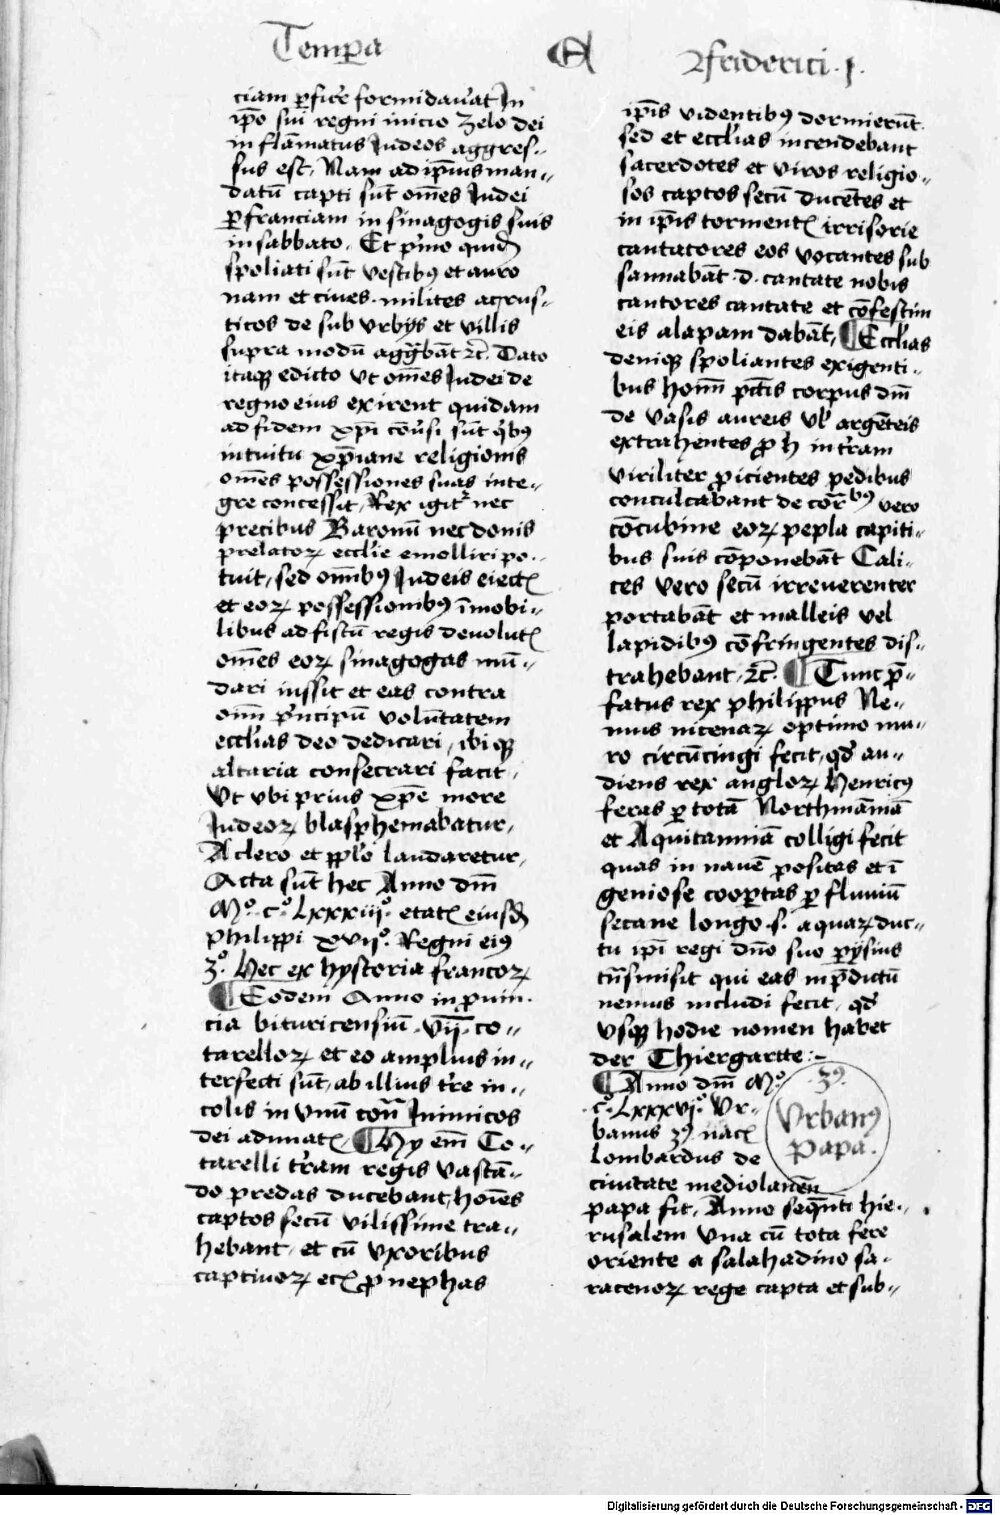 Temp̲a A Friderici · I ·
ciam p̲fic̄e formidav̄at In
ip̄o sui regni inicio zelo dei
in flāmatus Judeos aggres-
sus est, Nam ad ip̄ius man-
datū capti sūt om̄es Judei
p̲ franciam in sinagogis suis
in sabbato. Et p̄mo quidē
spoliati sūt vestibꝰ et auro
nam et ciues milites ac rus-
ticos de sub vrbijs et villis
supra modū agg̃bāt ⁊c̄. Dato
itaqꝫ edicto vt om̄es Judei de
regno eius exirent quidam
ad fidem xp̄i cōu̓si sūt qͥbꝰ
intuitu xp̄iane religionis
om̄es possessiones suas inte-
gre concessit, Rex igitᷣ nec
precibus Baronū nec donis
prelatoꝝ eccl̄ie emolliri po-
tuit, sed om̄ibꝰ Judeis eiectꝭ
et eoꝝ possessionibꝰ īmobi-
libus ad fiscū regis deuolutꝭ
om̄es eoꝝ sinagogas mū-
dari iussit et eas contra
om̄ p̓ncipū volūtatem
eccl̄ias deo dedicari, ibi qꝫ
altaria consecrari facit,
Vt vbi prius xp̄e more
Judeoꝝ blasphemabatur,
A clero et pp̄lo laudaretur,
Acta sūt hec Anno dm̄
Mº. cº. Lxxxiijº. etatꝭ eiusdē
Philippi xvijº. Regni eiꝰ
3º. Hec ex hystoria francoꝝ
¶ Eodem Anno in ꝓuin-
cia bituricensiū · vij̄ · co-
tarelloꝝ et eo amplius in-
terfecti sūt, ab illius tr̄e in-
colis in vnū cōtͣ Inimicos
dei adunatꝭ, ¶ Hy em̄ Co-
tarelli tr̄am regis vastā-
do predas ducebant, hoīes
captos secū vilissime tra-
hebant, et cū vxoribus
captiuoꝝ ecꝭ ꝓ nephas
ip̄is videntibꝰ dormierūt.
sed et eccl̄ias incendebant
sacerdotes et viros religio-
sos captos secū ducētes et
in ip̄is tormentꝭ irrisorie
cantatores eos vocantes sub
sannabāt · d. cantate nobis
cantores cantate et cōfestim
eis alapam dabāt, ¶ Eccl̄ias
deniqꝫ spoliantes exigenti-
bus hom̄ pctīs corpus dm̄
de vasis aureis vl̓ argēteis
extrahentes ꝓ h in tr̄am
viriliter ꝓicientes pedibus
conculcabant de cor̄bꝰ vero
cōcubine eoꝝ pepla capiti-
bus suis cōponebāt Cali-
ces vero secū irreuerenter
portabāt et malleis vel
lapidibꝰ cōfringentes dis-
trahebant, ⁊c̄. ¶ Tunc p̄-
fatus rex philippus Ne-
mus nicenaꝝ optimo mu-
ro circūcingi fecit, qd̓ au-
diens rex angloꝝ Henricꝰ
feras p̲ totā Northmāniā
et Aquitanniā colligi fecit
quas in nauē positas et ī
geniose coop̲tas p̲ fluuiū
secane longo · s. aquaꝝ duc-
tu ip̄i regi dn̄o suo p̲ysius
tn̄smisit qui eas in p̄dictū
nemus includi fecit, qd̓
vsqꝫ hodie nomen habet
der Thiergartte:-
¶ Anno dm̄ Mº.
cº. Lxxxvjº. Vr-
banus 3ꝰ nacꝭ
lombardus de
ciuitate mediolanēn
papa fit, Anno seqn̄ti hie-
rusalem vna cū tota fere
oriente a salahadino sa-
racenoꝝ rege capta et sub-
3ꝰ.
Vrbanꝰ
Papa.
Digitalisierung gefördert durch die Deutsche Forschungsgemeinschaft - DFG